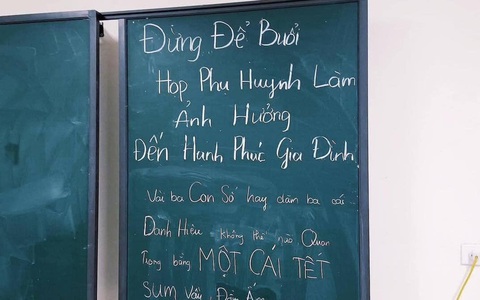 Đừng Để Buổi
Họp Phụ Huynh Làm
Ảnh Hưởng
Đến Hạnh Phúc Gia Đình
Vài ba Con Số hay dăm ba cái
Danh Hiệu không thể nào Quan
Trọng bằng MỘT CÁI TẾT
SUM Vầy Đầm Ấm